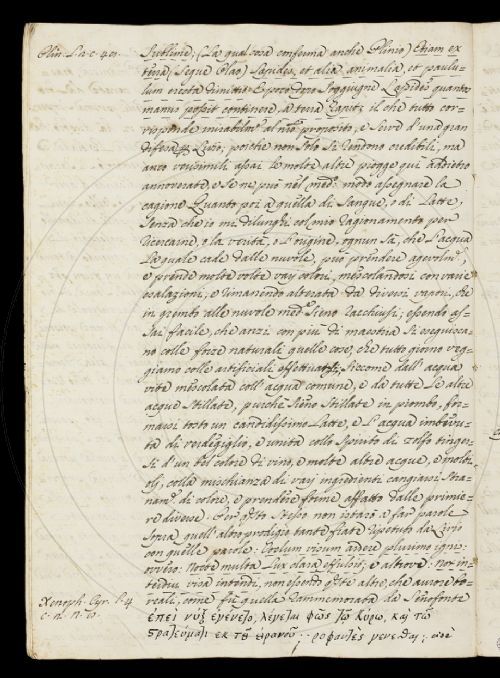 Plin. L. 2. c. 49.
Sublime; (La qual cosa conferma anche Plinio) Etiam ex
terra (segue Olao) Lapides, et alia animalia, et paulu-
lum erecta dimittit. E poco dopo soggiugne Lapides quantos
manus possit continere, a terra rapit; il che tutto cor-
risponde mirabilm.e al nr̃o proposito, e serve d'una gran
difesa Livio, poiche non solo si rendono credibili, ma
anco verisimili assai le molte altre piogge qui addietro
annoverate, e se ne può nel med.o modo assegnare la
cagione. Quanto poi a quella di Sangue, o di Latte,
senza che io mi dilunghi col mio ragionamento per
ricercarne, o la verità, o l'origine, ognun sà, che l'acqua
la quale cade dalle nuvole, può prendere agevolm.e,
e prende molte volte varj colori, mescolandosi con varie
esalazioni, e rimanendo alterata da diversi vapori, che
in grembo alle nuvole med.e sieno racchiusi; essendo as-
sai facile, che anzi con più di maestria si eseguisca-
no colle forze naturali quelle cose, che tutto giorno veg-
giamo colle artificiali effettuarsi; siccome dall'acqua
vite mescolata coll'acqua comune, e da tutte le altre
acque stillate, purchè sieno stillate in piombo, for-
marsi tosto un candidissimo latte, e l'acqua imbevu-
ta di verdegiglio, e unita collo spirito di zolfo tinger-
si d'un bel colore di vino, e molte altre acque, e molti
olj, colla mischianza di varj ingredienti cangiarsi stra-
nam.e di colore, e prendere forme affatto dalle primie-
re diverse. Per q.sto stesso non istarò a far parole
sopra quell'altro prodigio tante fiate riputato da Livio
con quelle parole: Coelum visum ardere plurimo igni:
ovvero: Nocte multa lux clara effulsit; e altrove: noc in-
terdiu visa intendi, non essendo q.sto altro, che aurore bo-
reali, come fù quella rammemorata da Senofonte
Xenoph. Cyr. l. 4
c. n. n. 10.
ἐπεὶ νὺξ ἐγένετο, λέγεται φῶς τῷ Κύρῳ, καὶ τῷ
στρατεύματι ἐκ τοῦ οὐρανοῦ προφανὲς γενέσθαι; ὥστε